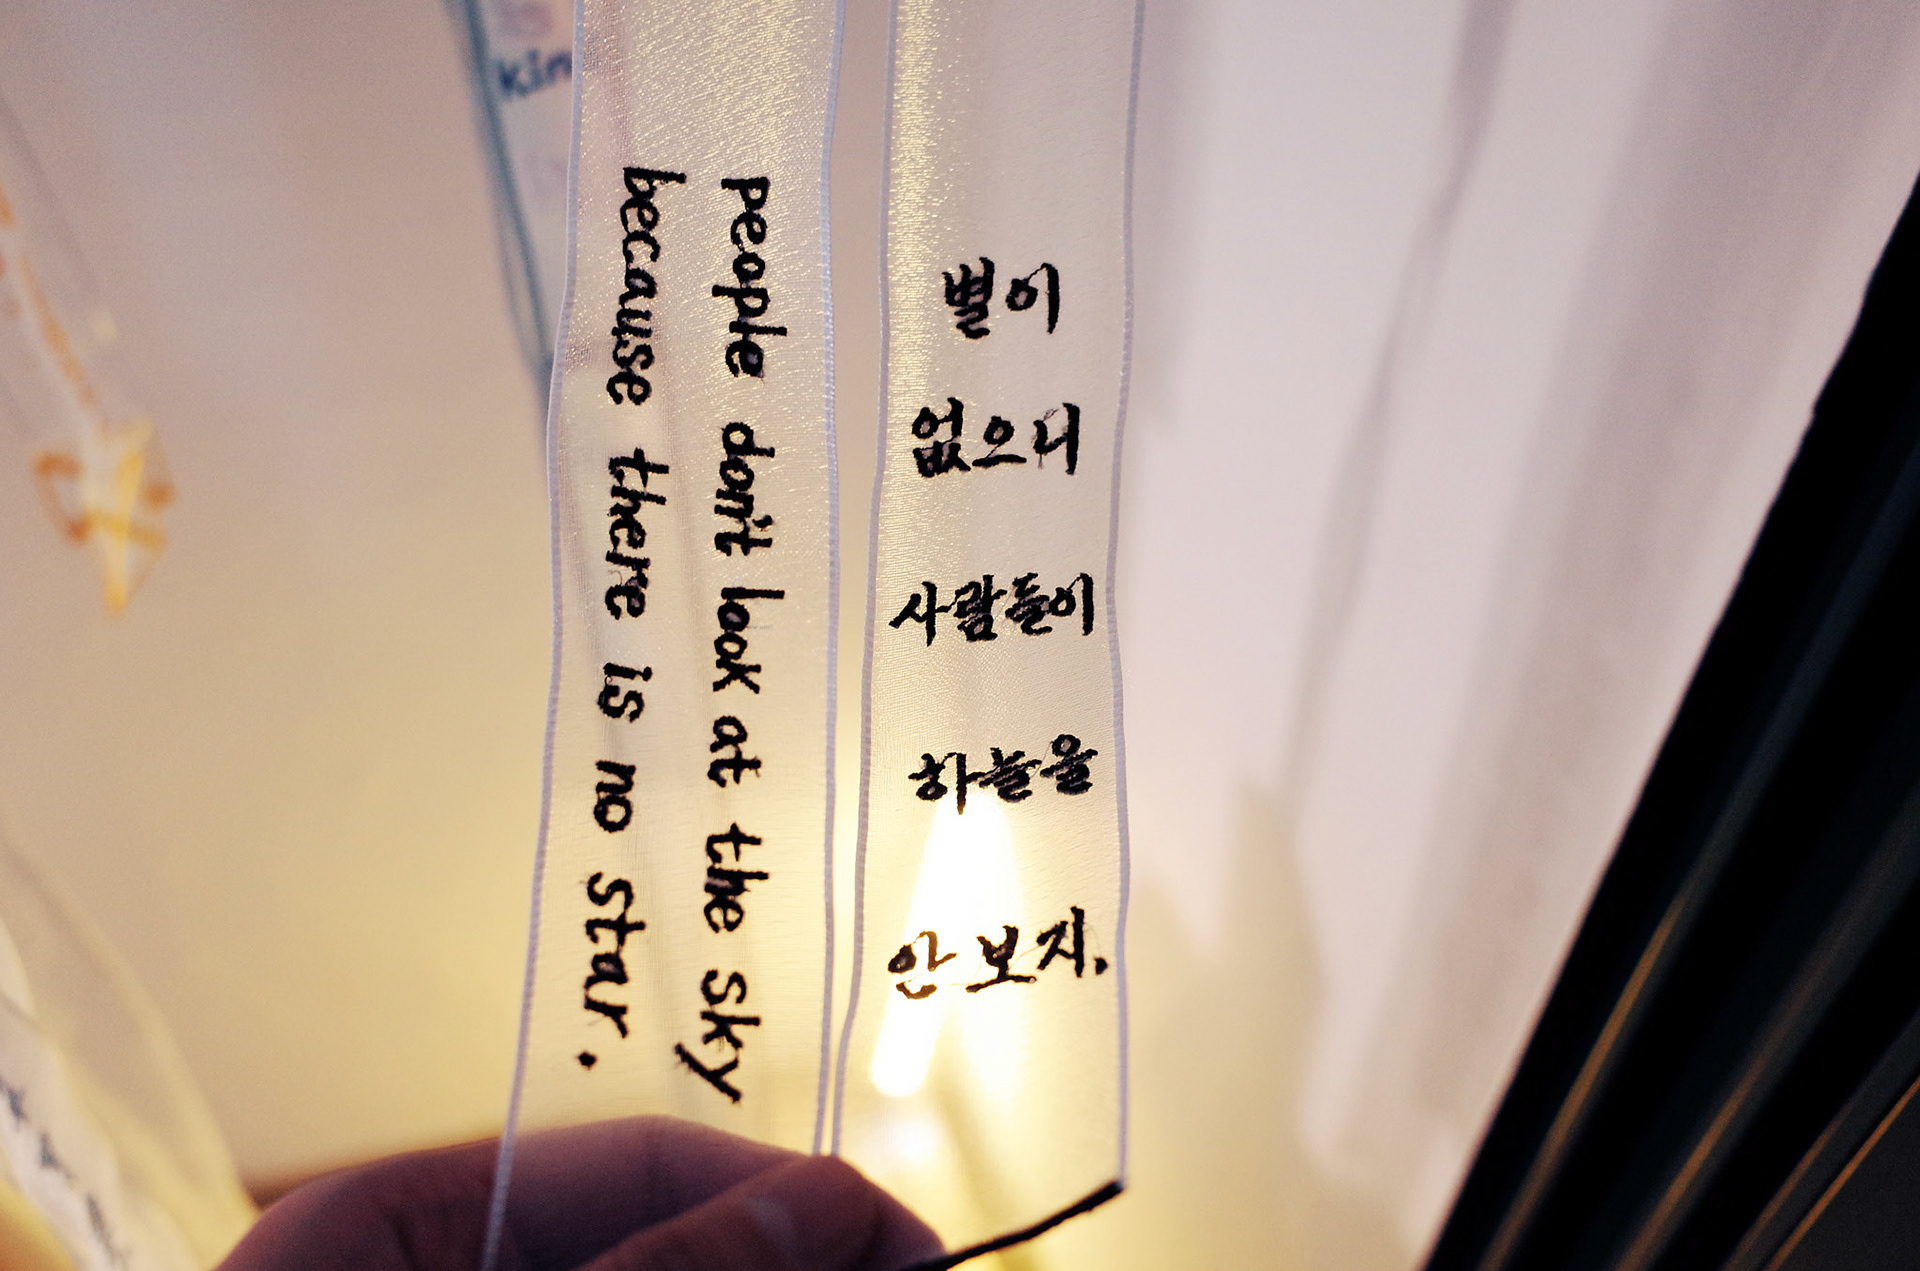 people don't look at the sky
because there is no star.
별이
없으니
사람들이
하늘을
안 보지.